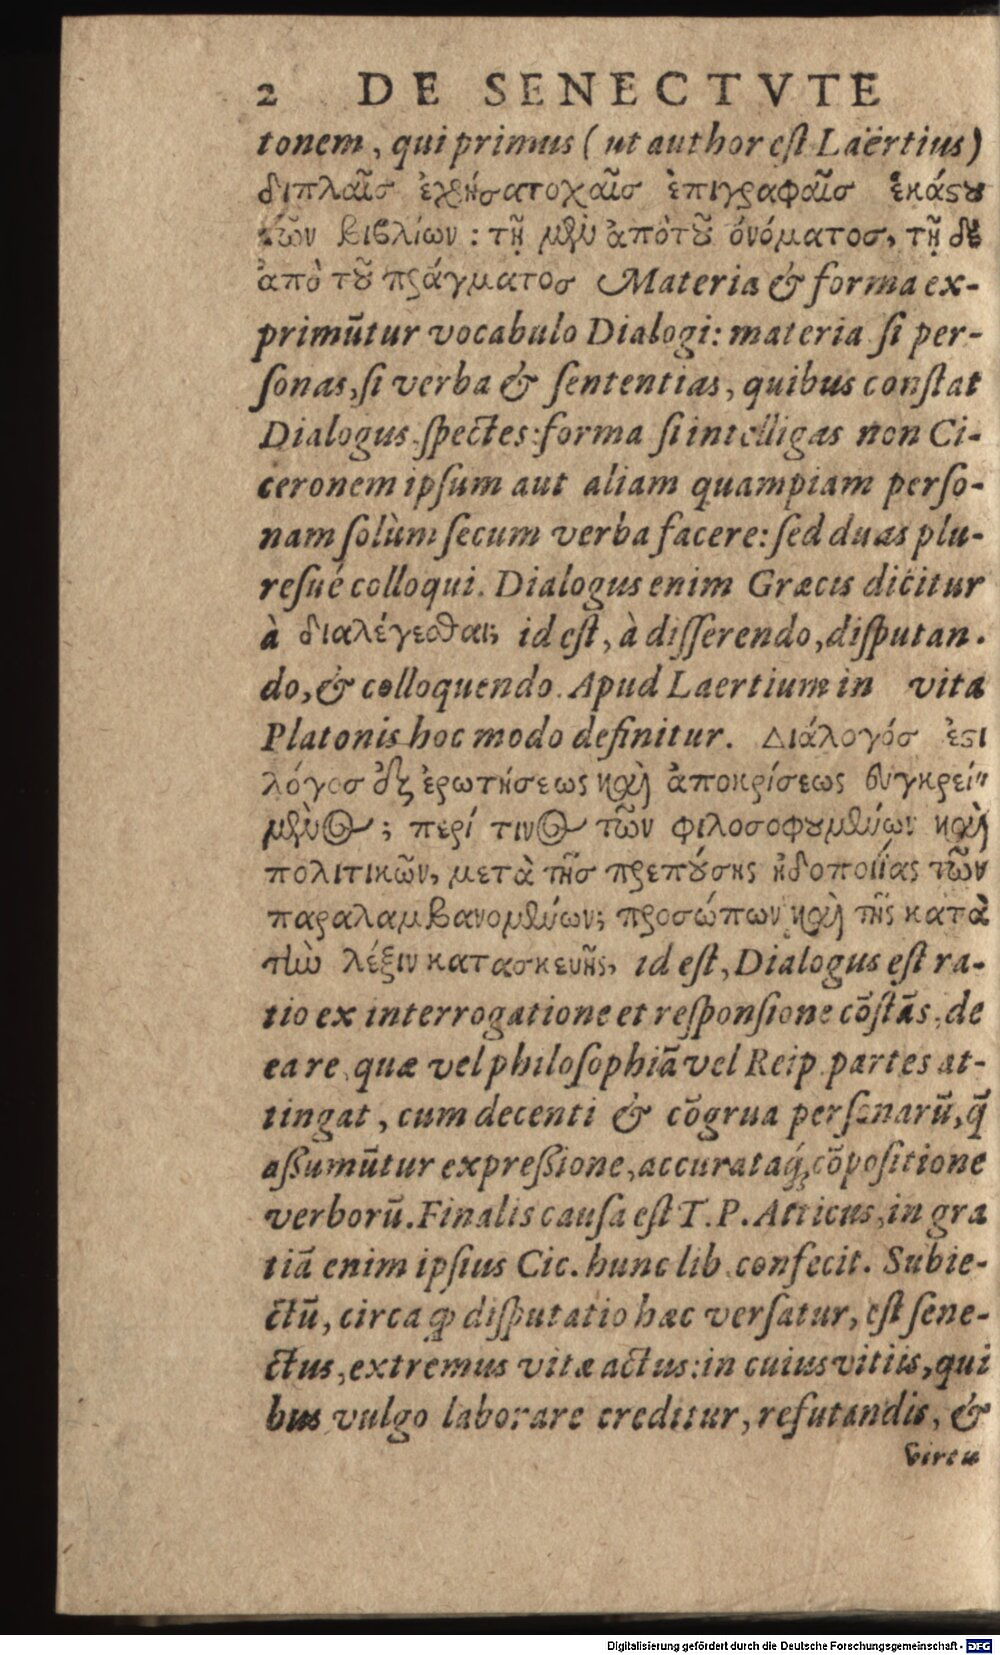 2 DE SENECTVTE
tonem, qui primus (ut author est Laërtius)
διπλαῖσ ἐχρήσατοχαῖσ ἐπιγραφαῖσ ἑκάςου
τῶν βιβλίων: τῇ μὲν ἀπὸτοῦ ὀνόματοσ, τῇ δὲ
ἀπὸ τοῦ πράγματοσ Materia & forma ex-
primūtur vocabulo Dialogi: materia si per-
sonas, si verba & sententias, quibus constat
Dialogus spectes: forma si intelligas non Ci-
ceronem ipsum aut aliam quampiam perso-
nam solùm secum verba facere: sed duas plu-
resué colloqui. Dialogus enim Græcis dicitur
à διαλέγεσθαι, id est, à disserendo, disputan-
do, & colloquendo. Apud Laertium in vita
Platonis hoc modo definitur. Διάλογόσ ἐςι
λόγοσ ἐξ ἐρωτήσεως καὶ ἀποκρίσεως συγκρεί-
μενος; περί τινος τῶν φιλοσοφουμένων καὶ
πολιτικῶν, μετὰ τῆσ πρεπούσης ἠδοποιΐας τῶν
παραλαμβανομένων; προσώπων καὶ τῆς κατὰ
τὴν λέξιν κατασκευῆς, id est, Dialogus est ra-
tio ex interrogatione et responsione cōstās, de
ea re, quæ vel philosophiā vel Reip. partes at-
tingat, cum decenti & cōgrua personarū, q̄
assumūtur expressione, accurataq́; cōpositione
verborū. Finalis causa est T. P. Atticus, in gra
tiā enim ipsius Cic. hunc lib. confecit. Subie-
ctū, circa qđ disputatio hæc versatur, est sene-
ctus, extremus vitæ actus: in cuius vitiis, qui
bus vulgo laborare creditur, refutandis, &
virtu
Digitalisierung gefördert durch die Deutsche Forschungsgemeinschaft - DFG